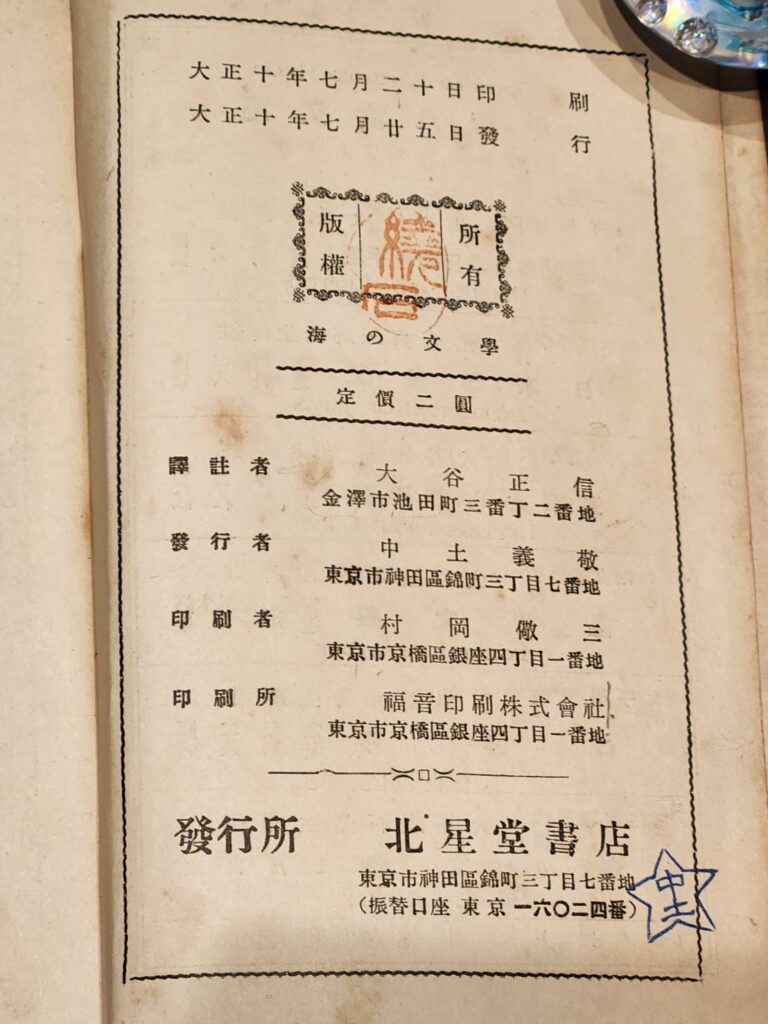 大正十年七月二十日印刷
大正十年七月廿五日發行
版權所有
繞石
海の文學
定價二圓
譯註者 大谷正信
金澤市池田町三番丁二番地
發行者 中土義敬
東京市神田區錦町三丁目七番地
印刷者 村岡儆三
東京市京橋區銀座四丁目一番地
印刷所 福音印刷株式會社
東京市京橋區銀座四丁目一番地
發行所 北星堂書店
東京市神田區錦町三丁目七番地
(振替口座 東京一六〇二四番)
中土